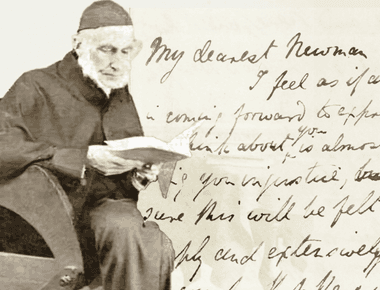 My dearest Newman
I feel as if a
in coming forward to expre
think about you is almos
g you injustice,
sure this will be felt
ply and extensively